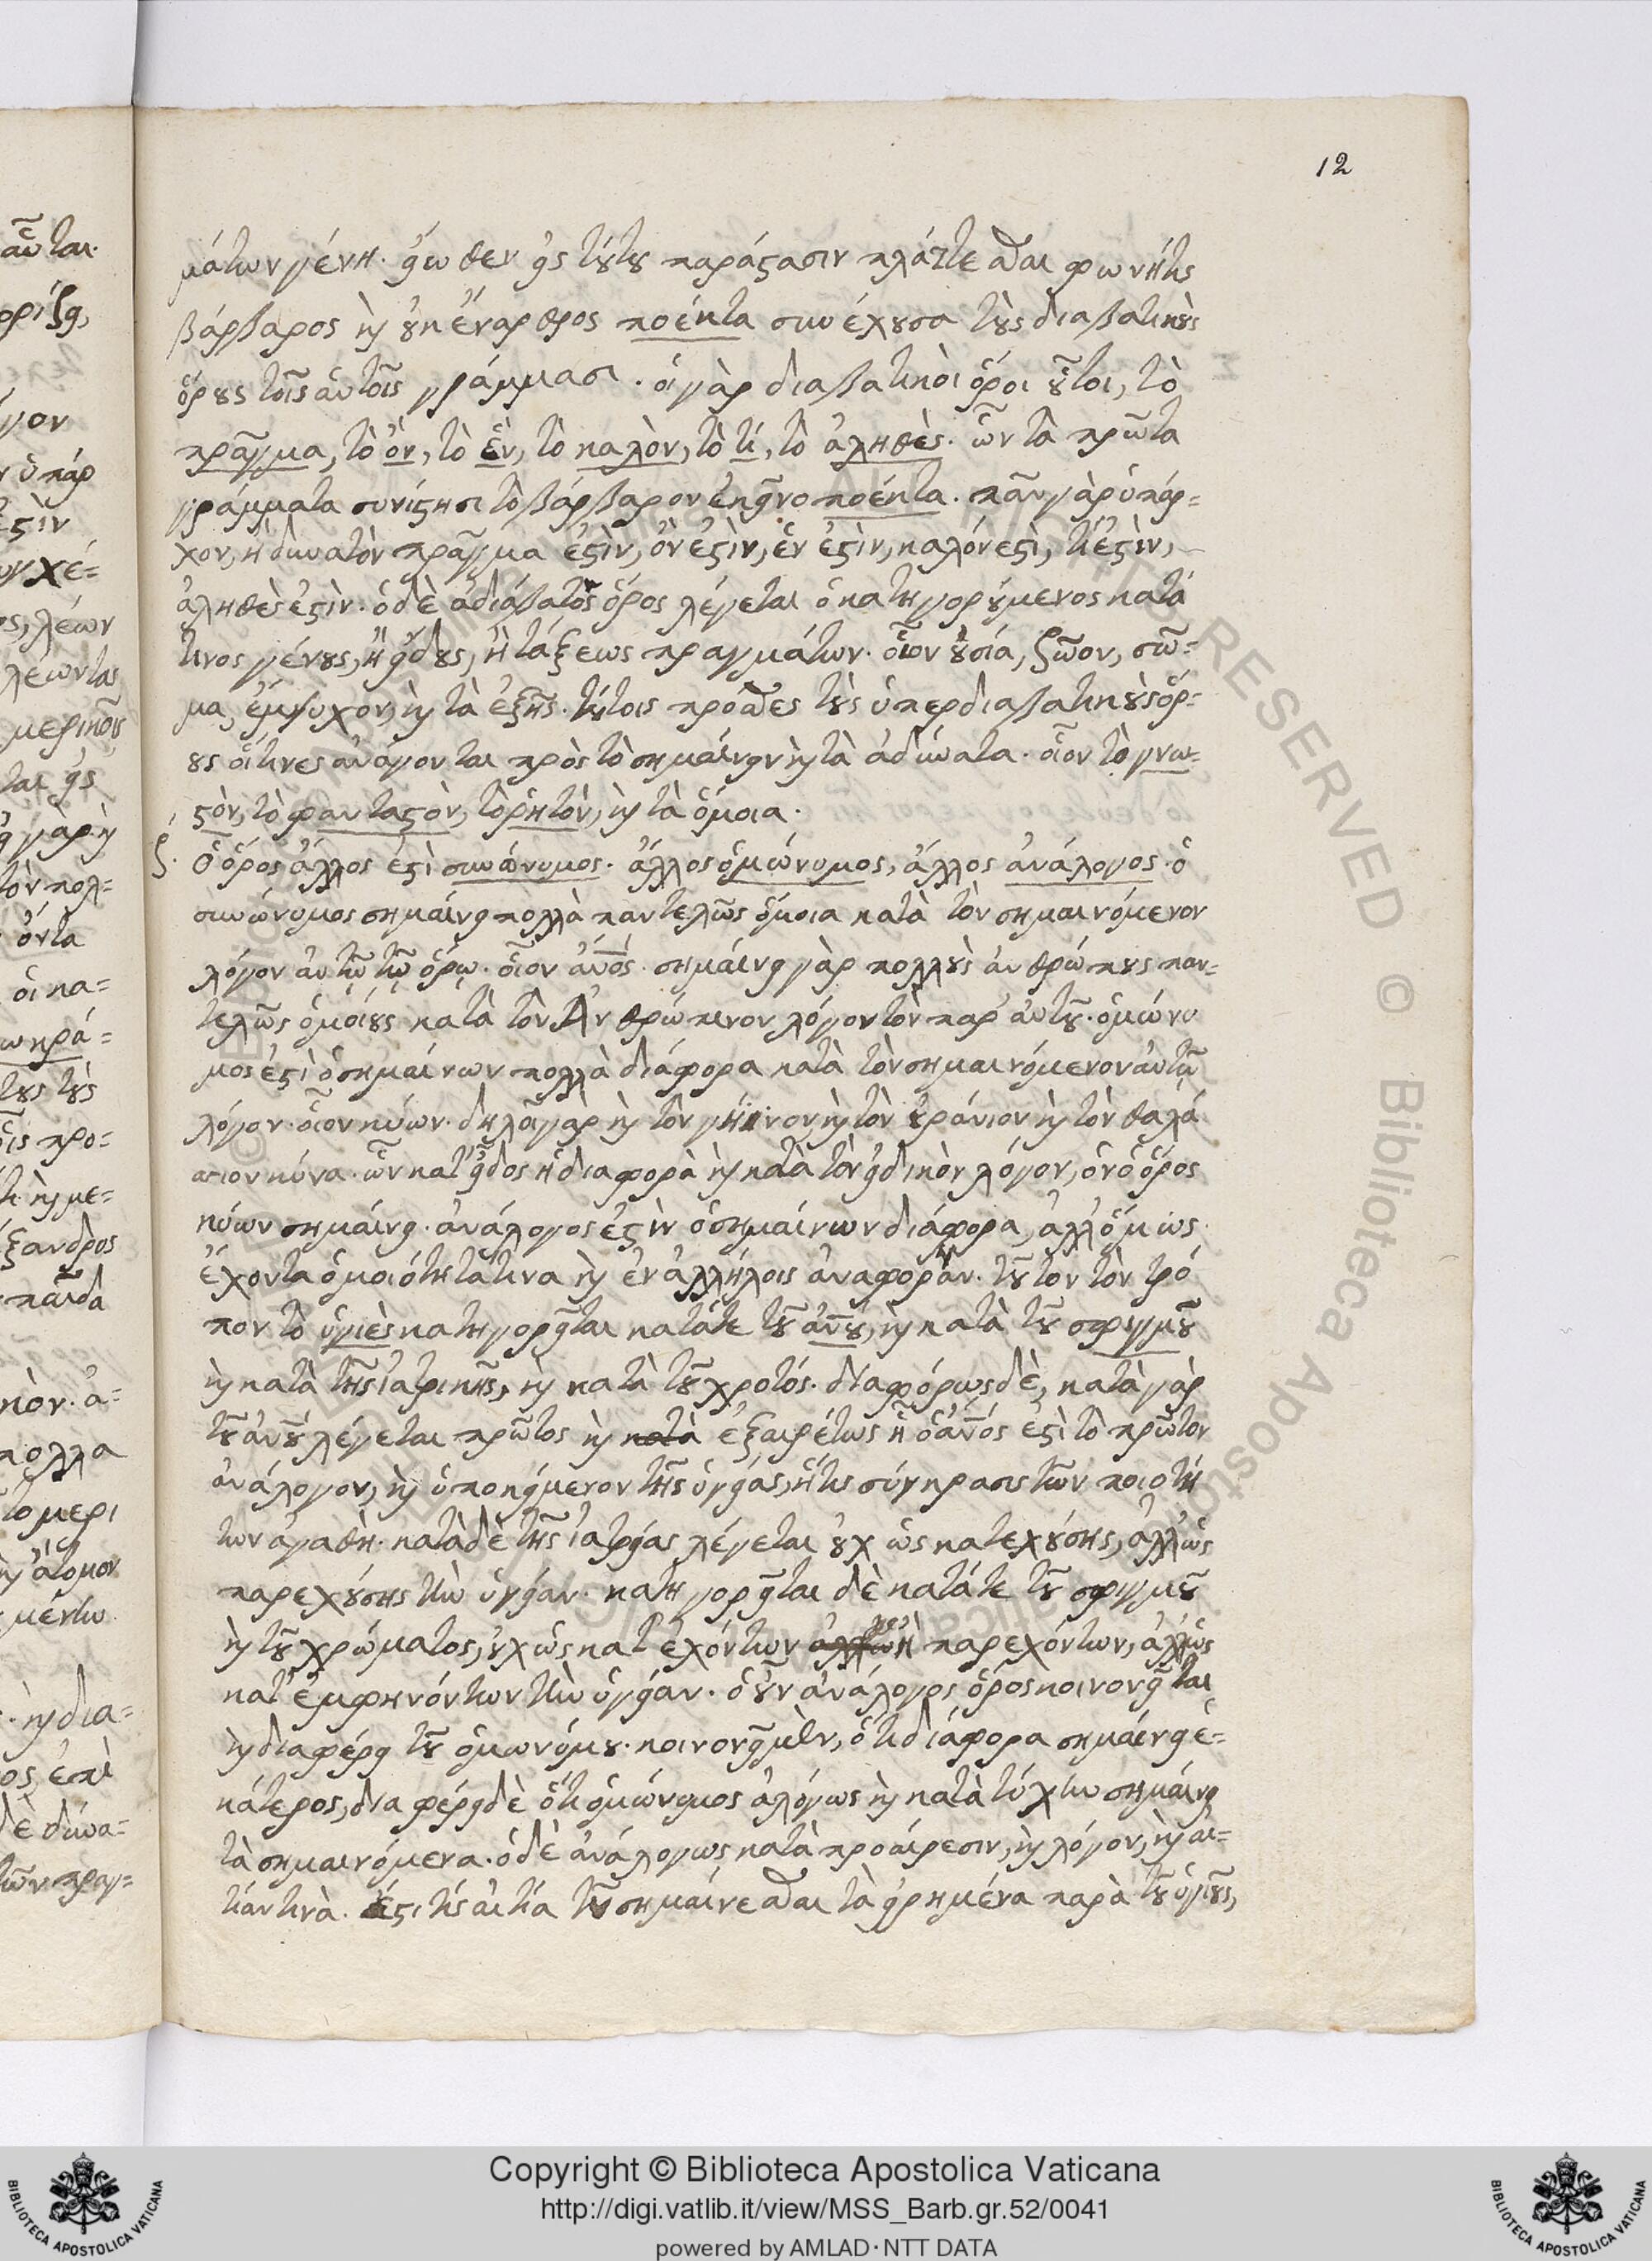 12
μάτων γένη. εἴωθεν εἰς τούτου παράστασιν πλάττεσθαι φωνήτις
βάρβαρος καὶ οὐκ ἔναρθρος ποέητα συνέχουσα τοὺς διαβατικοὺς
ὅρους τοῖς αὑτοῖς γράμμασι. οἱ γὰρ διαβατικοὶ ὅροι οὗτοι, τὸ
πρᾶγμα, τὸ ὂν, τὸ ἓν, τὸ καλὸν, τὸ τὶ, τὸ ἀληθὲς. ὧν τὰ πρῶτα
γράμματα συνίστησι τὸ βάρβαρον ἐκεῖνο ποέκτα. πᾶν γὰρ ὑπάρ=
χον, ἢ δυνατὸν πρᾶγμα ἐστὶν, ὂν ἐστὶν, ἓν ἐστὶν, καλόν ἐστὶ, τὶ ἐστὶν,
ἀληθὲς ἐστὶν. ὁ δὲ ἀδιάβατος ὅρος λέγεται ὁ κατηγορούμενος κατά
τινος γένους, ἢ εἴδους, ἢ τάξεως πραγμάτων. οἷον οὐσία, ζῶον, σῶ=
μα, ἔμψυχον, καὶ τὰ ἑξῆς. τούτοις πρόσθες τοὺς ὑπερδιαβατικοὺς ὅρ=
ους οἵτινες ἀνάγονται πρὸς τὸ σημαίνειν καὶ τὰ ἀδύνατα. οἷον τὸ γνω=
στὸν, τὸ φανταστὸν, τὸ ῥητὸν, καὶ τὰ ὅμοια.
ϛ. Ὁ ὅρος ἄλλος ἐστὶ συνώνυμος. ἄλλος ὁμώνυμος, ἄλλος ἀνάλογος. ὁ
συνώνυμος σημαίνει πολλὰ παντελῶς ὅμοια κατὰ τὸν σημαινόμενον
λόγον αὐτῷ τῷ ὅρῳ. οἷον ἄνος. σημαίνει γὰρ πολλοὺς ἀνθρώπους παν=
τελῶς ὁμοίους κατὰ τὸν Ἀνθρώπινον λόγον τὸν παρ' αὐτοῦ. ὁμώνυ
μος ἐστὶ ὁ σημαίνων πολλὰ διάφορα κατὰ τὸν σημαινόμενον αὐτῷ
λόγον. οἷον κύων. δηλοῖ γὰρ καὶ τὸν γήινον, καὶ τὸν οὐράνιον καὶ τὸν θαλά
σιον κύνα. ὧν κατ' εἶδος ἡ διαφορὰ καὶ κατὰ τὸν εἰδικὸν λόγον, ὃν ὁ ὅρος
κύων σημαίνει. ἀνάλογος ἐστὶν ὁ σημαίνων διάφορα, ἀλλ' ὅμως
ἔχοντα ὁμοιότητά τινα καὶ ἐν ἀλλήλοις ἀναφοράν. τοῦτον τὸν τρό
πον τὸ ὑγιὲς κατηγορεῖται κατά τε τοῦ ἀνου, καὶ κατὰ τοῦ σφυγμοῦ
καὶ κατὰ τῆς ἰατρικῆς, καὶ κατὰ τοῦ χροτός. διαφόρως δὲ, κατὰ γὰρ
τοῦ ἀνου λέγεται πρῶτος καὶ κατὰ ἐξαιρέτως ᾗ ὁ ἄνος ἐστὶ τὸ πρῶτον
ἀνάλογον, καὶ ὑποκείμενον τῆς ὑγείας, ἥτις σύγκρασις τῶν ποιοτή
των ἀγαθή. κατὰ δὲ τῆς ἰατρείας λέγεται οὐχ ὡς κατεχούσης, ἀλλ' ὡς
παρεχούσης τὴν ὑγείαν. κατηγορεῖται δὲ κατά τε τοῦ σφυγμοῦ
καὶ τοῦ χρώματος, οὐχ ὡς κατεχόντων ἢ παρεχόντων, ἀλλ' ὡς
κατ' ἐμφηνόντων τὴν ὑγείαν. ὁ οὖν ἀνάλογος ὅρος κοινονεῖται
καὶ διαφέρει τοῦ ὁμωνύμου. κοινονεῖ μὲν, ὅτι διάφορα σημαίνει ἑ=
κάτερος, διαφέρει δὲ ὅτι ὁμώνυμος ἀλόγως καὶ κατὰ τύχην σημαίνει
τὰ σημαινόμενα. ὁ δὲ ἀνάλογως κατὰ προαίρεσιν, καὶ λόγον, καὶ αι=
τίαν τινὰ. ἔστι τίς αἰτία τοῦ σημαίνεσθαι τὰ εἰρημένα παρὰ τοῦ ὑγιοῦς,
Copyright © Biblioteca Apostolica Vaticana
http://digi.vatlib.it/view/MSS_Barb.gr.52/0041
powered by AMLAD·NTT DATA
BIBLIOTECA APOSTOLICA VATICANA
BIBLIOTECA APOSTOLICA VATICANA